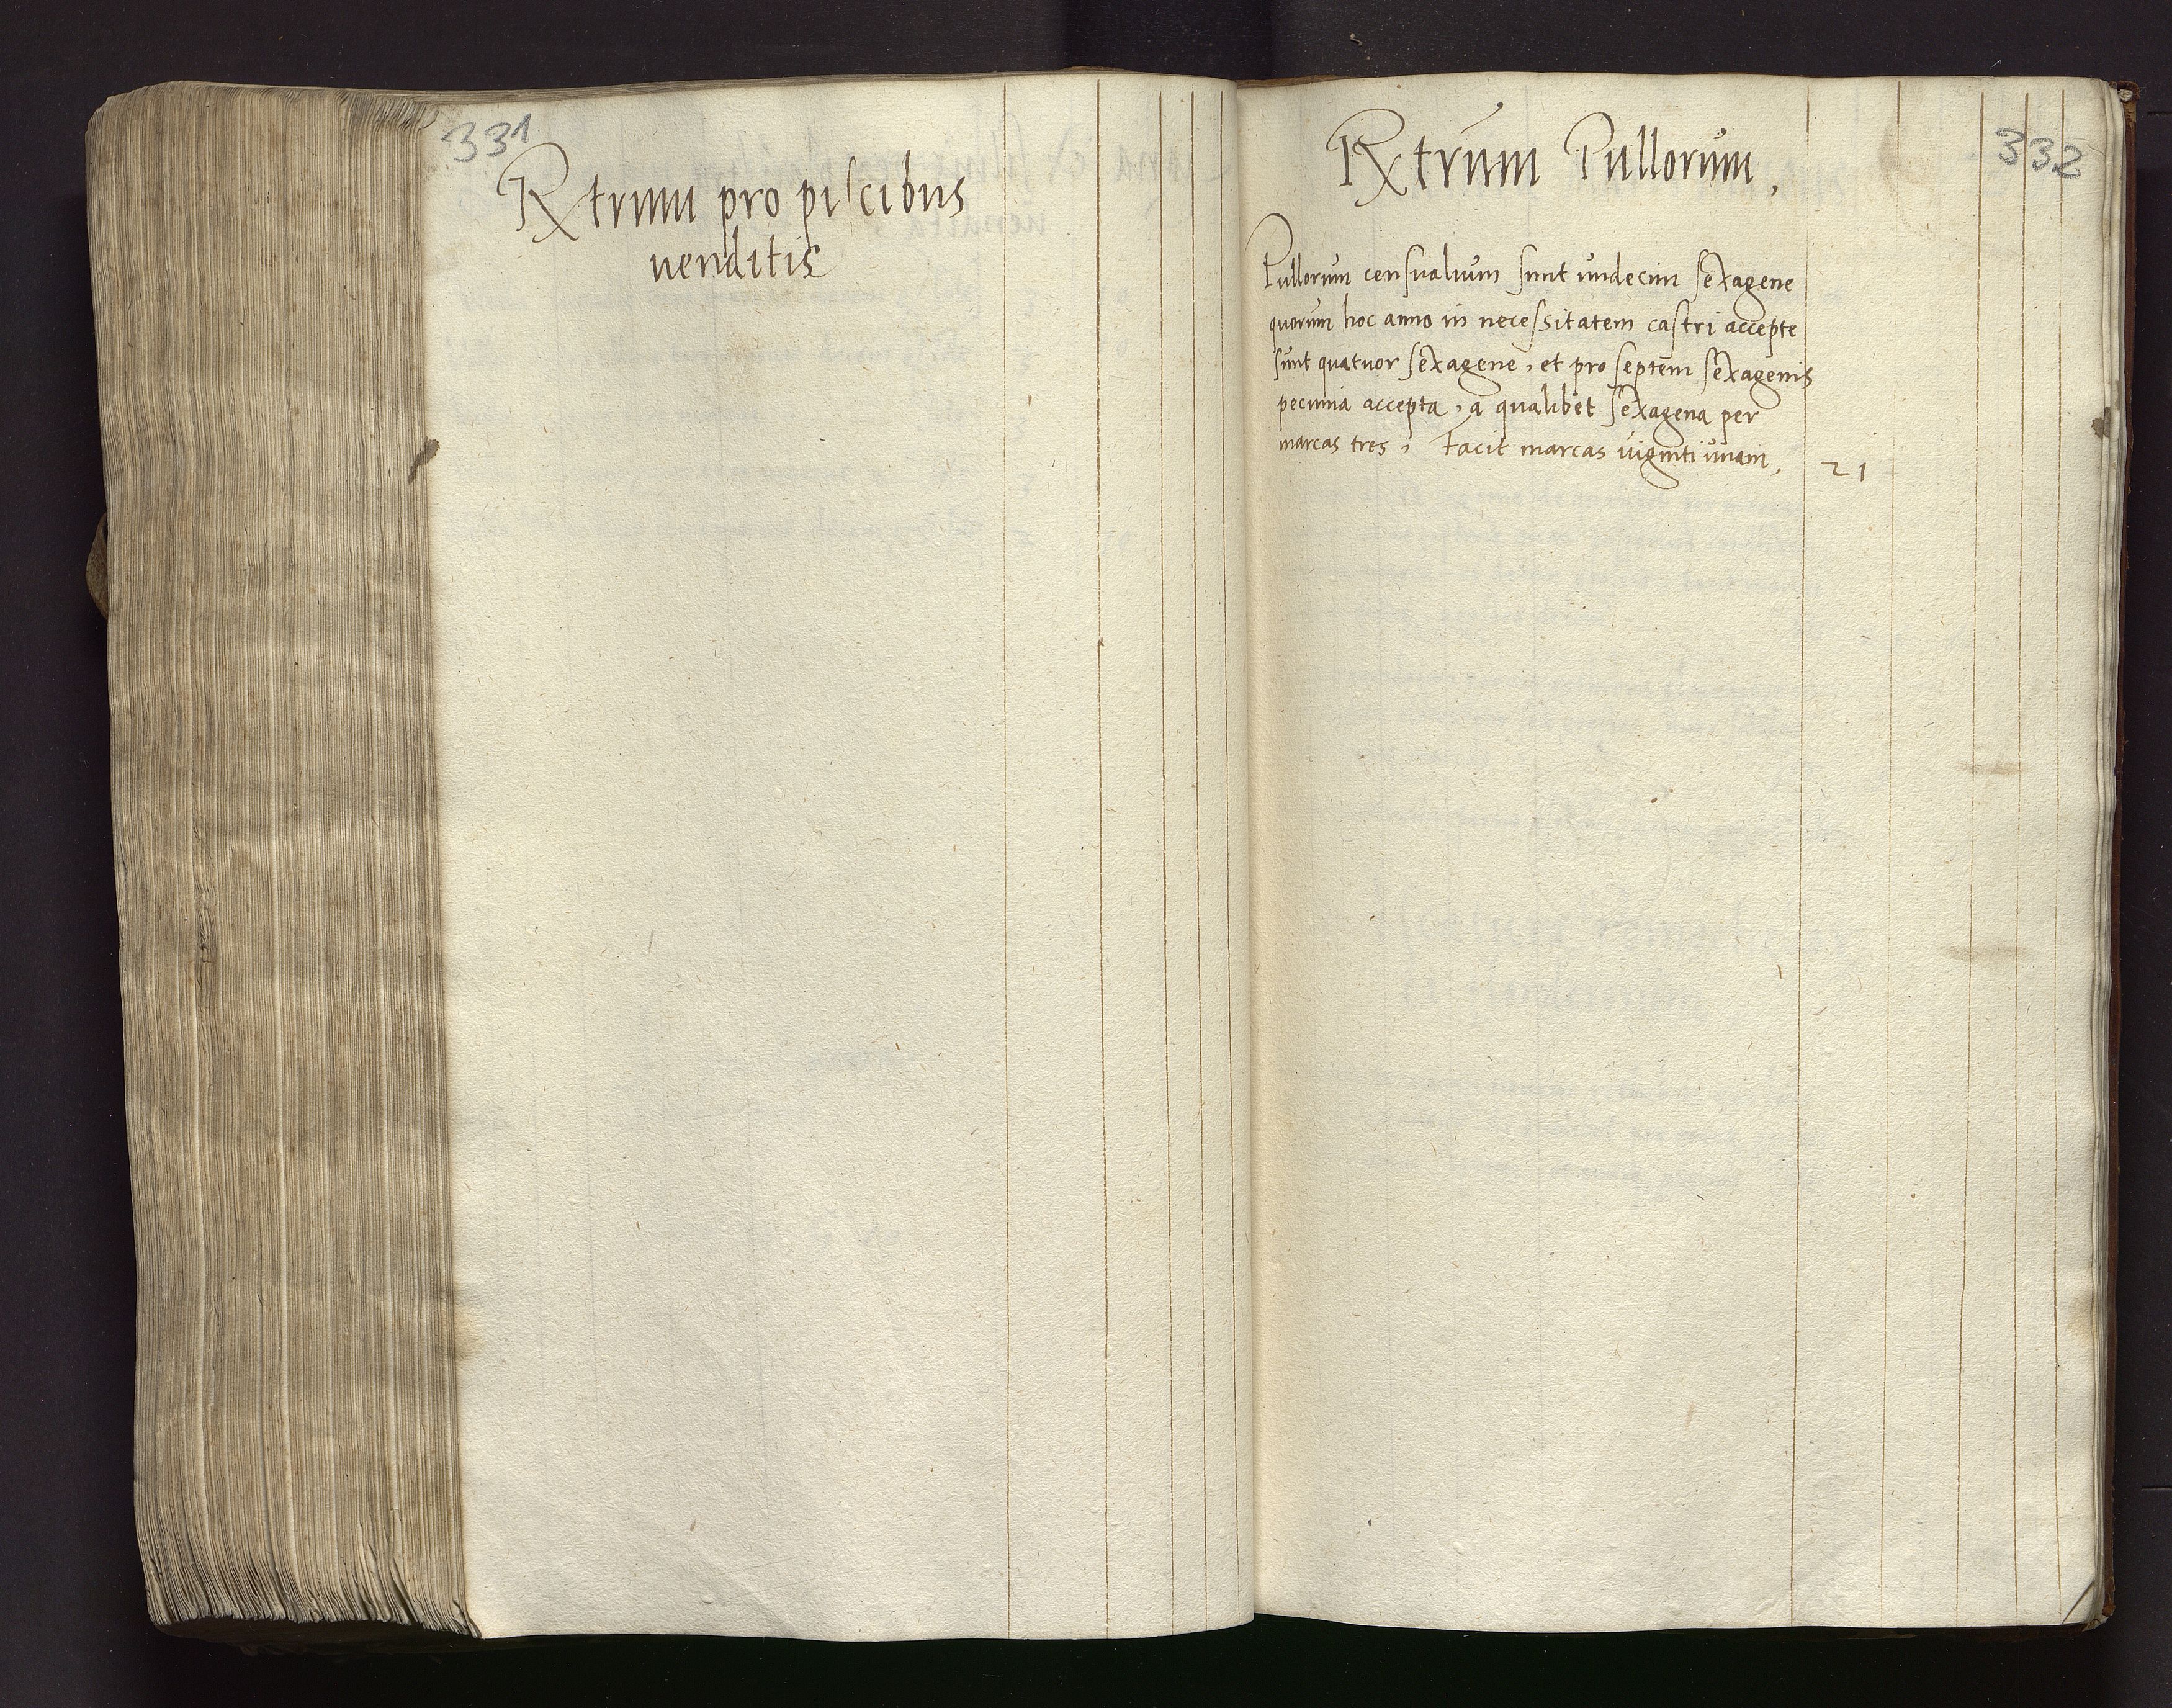 331
Rxtrum pro piscibus
uenditis
332
Rxtrum Pullorum,
Pullorum censualium sunt undecim sexagene
quorum hoc anno in necessitatem castri accepte
sunt quatuor sexagene, et pro septem sexagenis
pecunia accepta, a qualibet sexagena per
marcas tres, Facit marcas uiginti unam, 21